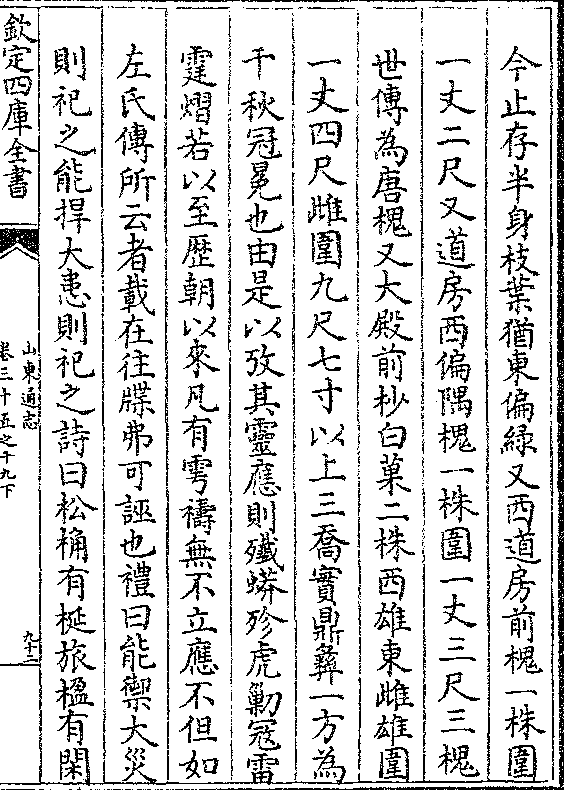 今止存半身枝葉猶東偏緑又西道房前槐一株圍
一丈二尺又道房西偏隅槐一株圍一丈三尺三槐
世傳為唐槐又大殿前杪白菓二株西雄東雌雄圍
一丈四尺雌圍九尺七寸以上三喬實鼎彛一方為
千秋冠冕也由是以攷其靈應則殱蟒殄虎勦冦雷
霆熠若以至歴朝以來凡有雩禱無不立應不但如
左氏傳所云者載在往牒弗可誣也禮曰能禦大災
則祀之能捍大患則祀之詩曰松桷有梴旅楹有閑
欽定四庫全書
山東通志
卷三十五之十九下
九十二